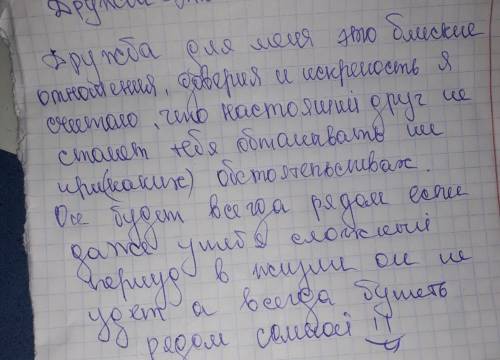 Дружба
Дружба для меня это блиские
отношения, доверия и искреность я
считаю, что настоящий друг не
станет тебя обманывать ни
при(каких) обстоятельствах.
Он будет всегда рядом если
даже у тебя сложный
период в жизни он не
удет а всегда будеть
рядом стобой !!